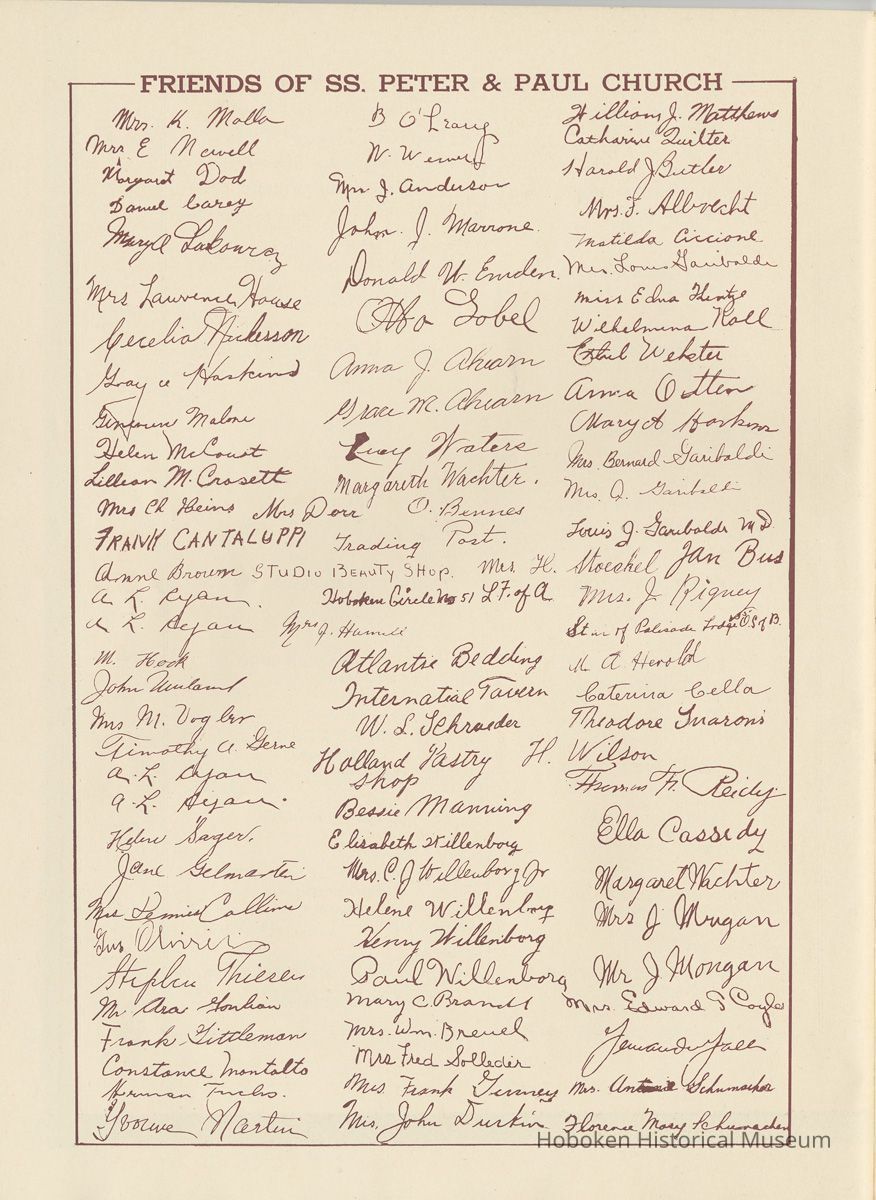 FRIENDS OF SS. PETER & PAUL CHURCH
Mrs. K. Malla
Mrs E Newell
Margaret Dod
Daniel Carey
Mary A
Mrs Lawrence House
Cecelia Nickerson
Grayce Haskins
Malone
Helen McCourt
Lillian M. Crosett
Mrs Ch Heins Mrs Dorr
FRANK CANTALUPPI
Anne Brown STUDIO BEAUTY SHOP.
A. L. Ryan.
A L. Ryan Mrs J. Hamill
M. Hook
John
Mrs M. Vogler
Timothy A.
A. L. Ryan
A. L. Ryan.
Helen Sager.
Jane Gelmartin
Mrs Collins
Gus
Stephen Thiesen
Mr Ara
Frank Tittleman
Constance Montalto
Herman Fuchs.
Yvonne Martin
B O'Leary
W.
Mrs J. Anderson
John J. Marrone.
Donald W. Emden.
Otto Gobel
Anna J. Ahearn
Grace M. Ahearn
Lucy Waters
Margareth Wachter.
O. Bennes
Trading Post.
Mrs. H. Stoeckel
Hoboken Circle No 51 L F. of A.
Atlantic Bedding
Internatial Tavern
W. L. Schroeder
Holland Pastry
Shop
Bessie Manning
Elisabeth Willenborg
Mrs. C. J Willenborg Jr
Helene Willenborg
Henry Willenborg
Paul Willenborg
Mary C. Brandt
Mrs. Wm. Breuel
Mrs Fred Solleder
Mrs Frank
Mrs. John Durkin
William J. Matthews
Catharine Quilter
Harold J Butler
Mrs. F. Albrecht
Matilda Ciccione
Mrs. Louis Garibaldi
Miss Edna Hintze
Wilhelmina Roll
Ethel Webster
Anna Otten
Mary A Harkins
Mrs. Bernard Garibaldi
Mrs. J. Garibaldi
Louis J. Garibaldi M D
Jan Bus
Mrs. J. Rigney
Star of Palisade Lodge
A Herold
Caterina Cella
Theodore
H. Wilson
Thomas F. Reidy
Ella Cassidy
Margaret Wachter
Mrs J Mogan
Mr J Mongan
Mrs. Edward T Coyle
Mrs. Schumacher
Florence Mary Schumacher
Hoboken Historical Museum